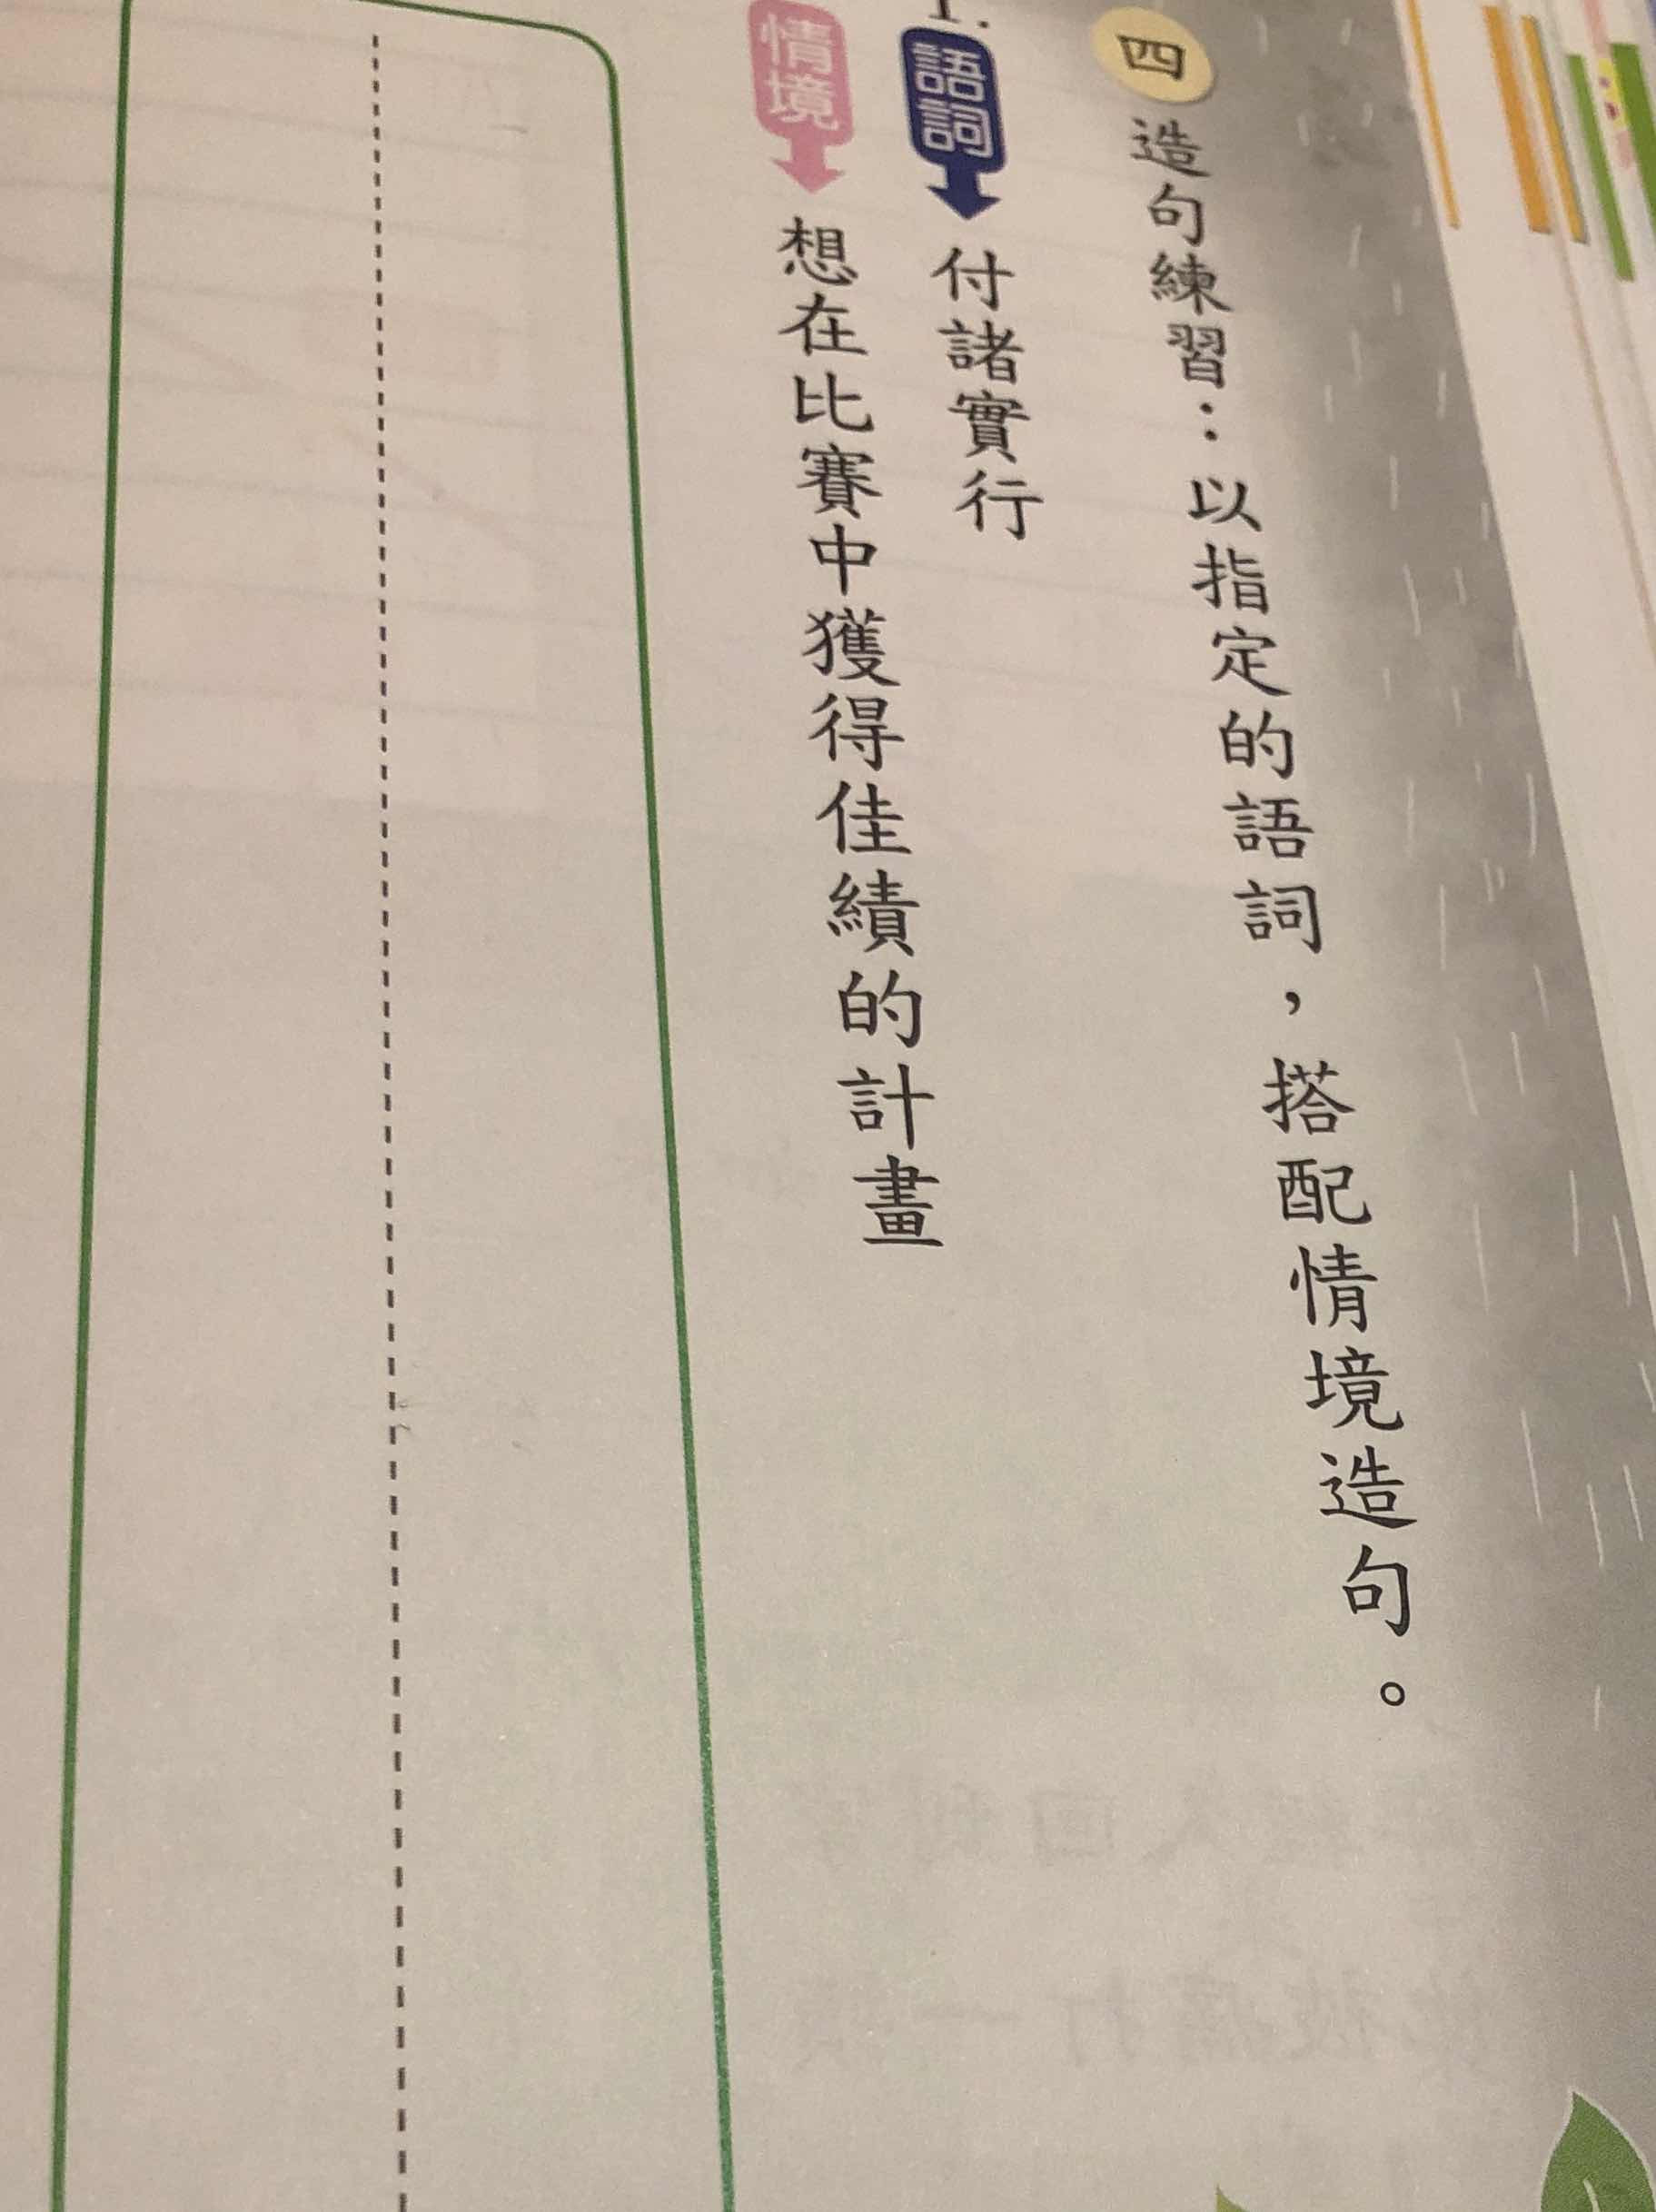 四 造句練習：以指定的語詞，搭配情境造句。
1.
語詞 付諸實行
情境 想在比賽中獲得佳績的計畫